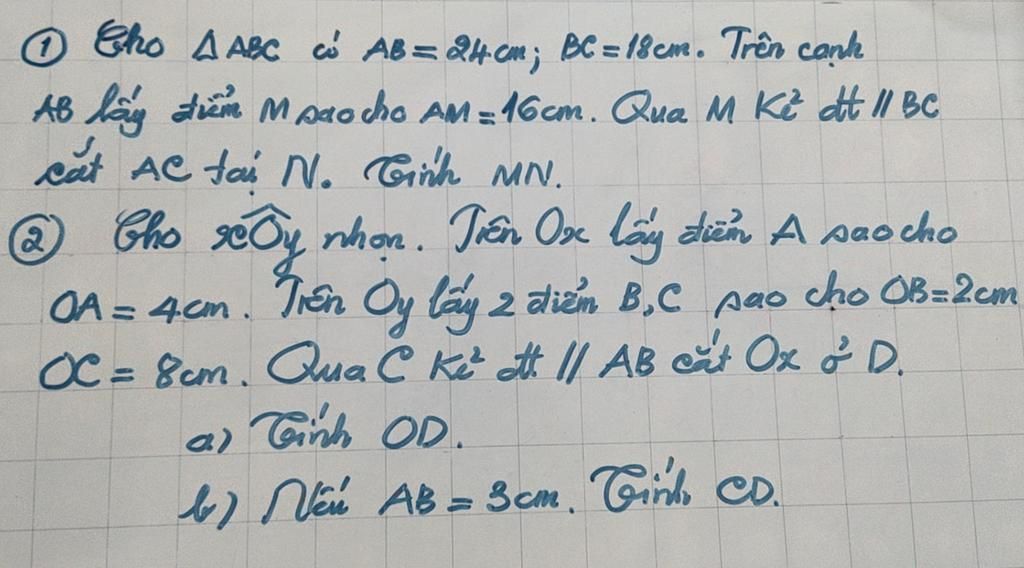 ① Cho △ABC có AB = 24cm; BC = 18cm. Trên cạnh
AB lấy điểm M sao cho AM = 16cm. Qua M Kẻ đt // BC
cắt AC tại N. Tính MN.
② Cho xÔy nhọn. Trên Ox lấy điểm A sao cho
OA = 4cm. Trên Oy lấy 2 điểm B,C sao cho OB = 2cm
OC = 8cm. Qua C Kẻ đt // AB cắt Ox ở D.
a) Tính OD.
b) Nếu AB = 3cm. Tính CD.